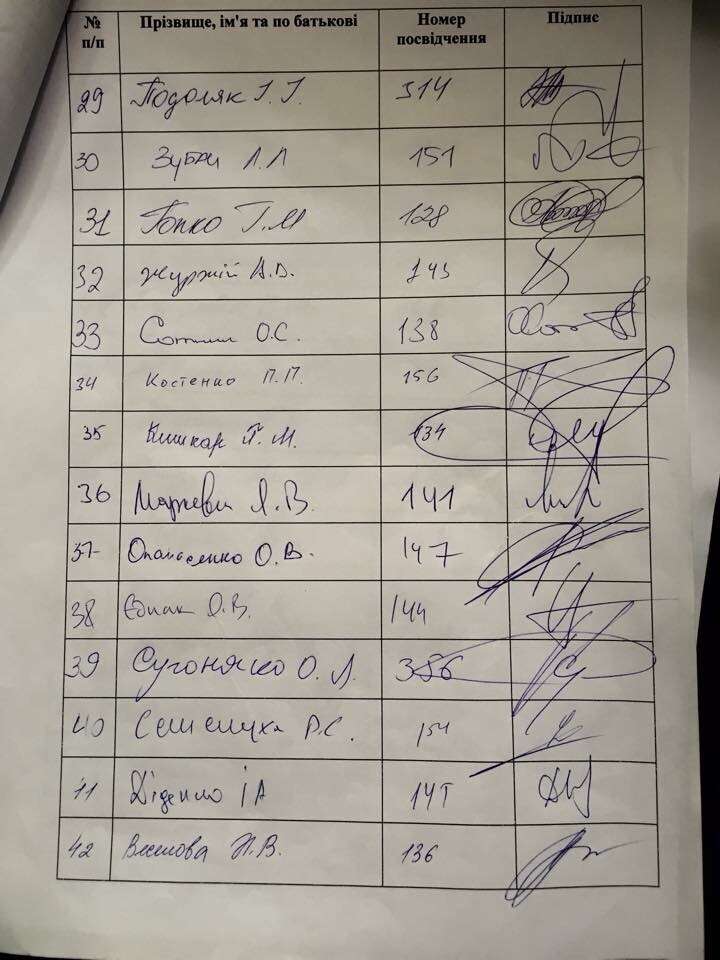 № п/п Прізвище, ім'я та по батькові Номер посвідчення Підпис
29 Подоляк І. І. 314
30 Зубач Л.Л 151
31 Гопко Г.М 128
32 Журжій А.В. 143
33 Сотник О.С. 138
34 Костенко П.П. 156
35 Кишкар П. М. 134
36 Маркевич Я.В. 141
37 Опанасенко О.В. 147
38 Єднак О.В. 144
39 Сугоняко О.Л. 356
40 Семенуха Р.С. 154
41 Діденко І А
42 Веселова Н.В. 136